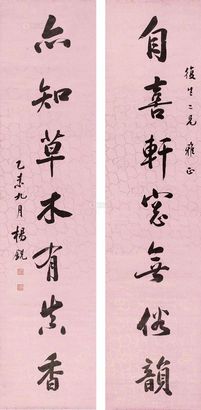 復生二兄 雅正
自喜軒窗無俗韻
亦知草木有真香
乙未九月 楊銳